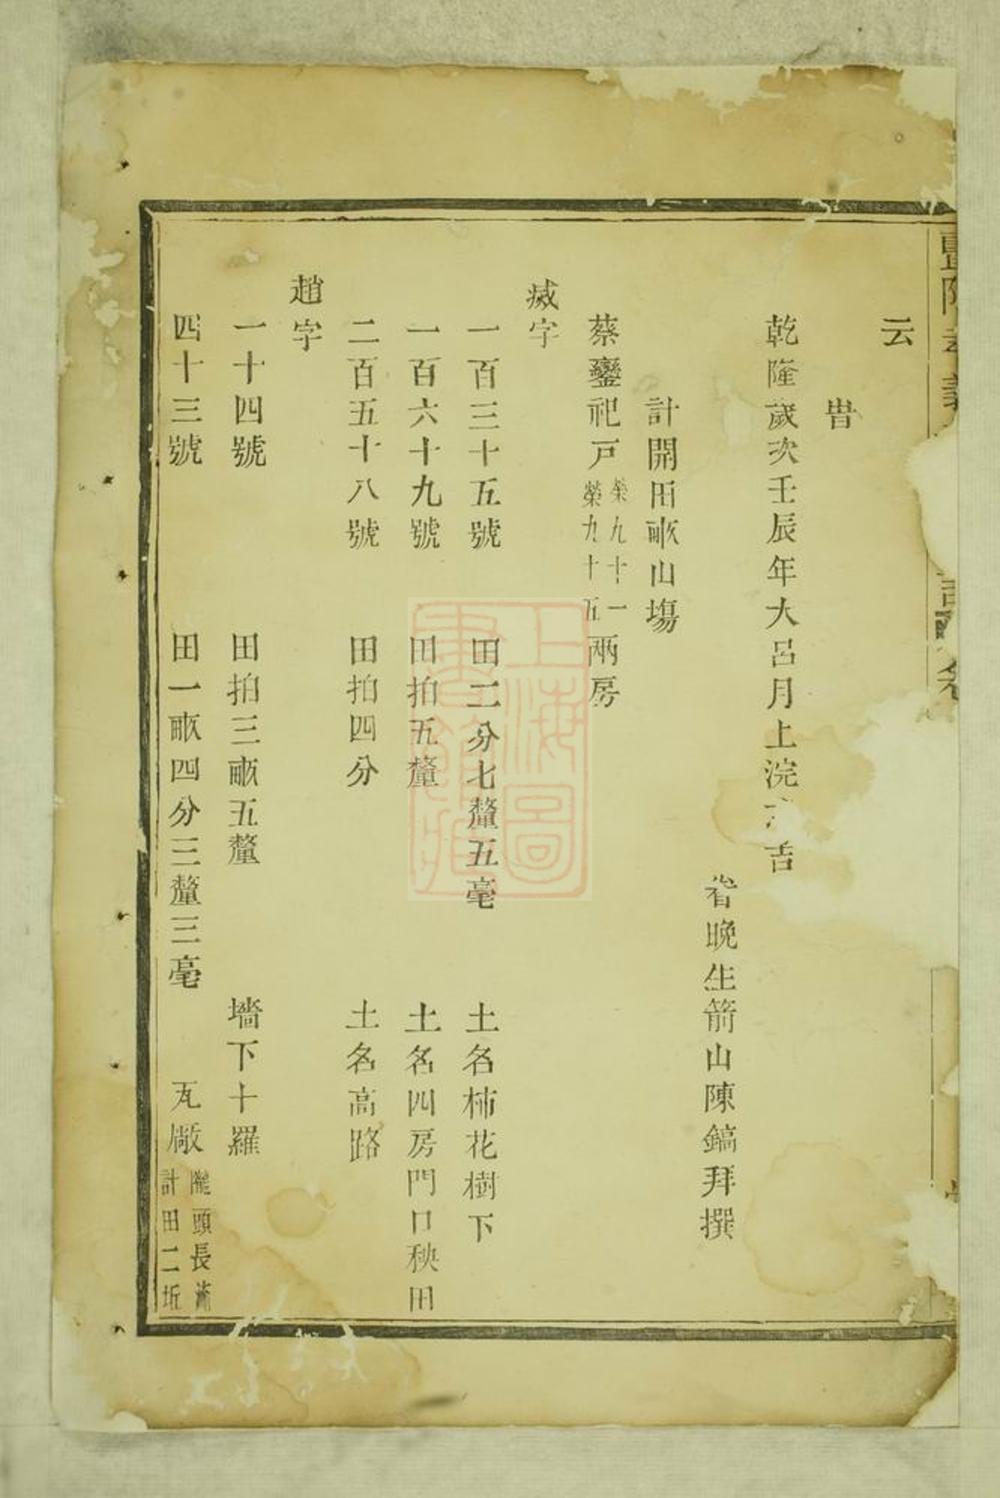 暨陽孝義
云
旹
乾隆歲次壬辰年大呂月上浣 吉
眷晚生箭山陳鎬拜撰
計開田畝山塲
蔡鑾祀戸榮九十一榮九十五兩房
烕字
一百三十五號 田二分七釐五毫 土名柿花樹下
一百六十九號 田拍五釐 土名四房門口秧田
二百五十八號 田拍四分 土名高路
趙字
一十四號 田拍三畝五釐 墻下十羅
四十三號 田一畝四分三釐三毫 瓦厰隴頭長蕭計田二坵
上海圖書館藏